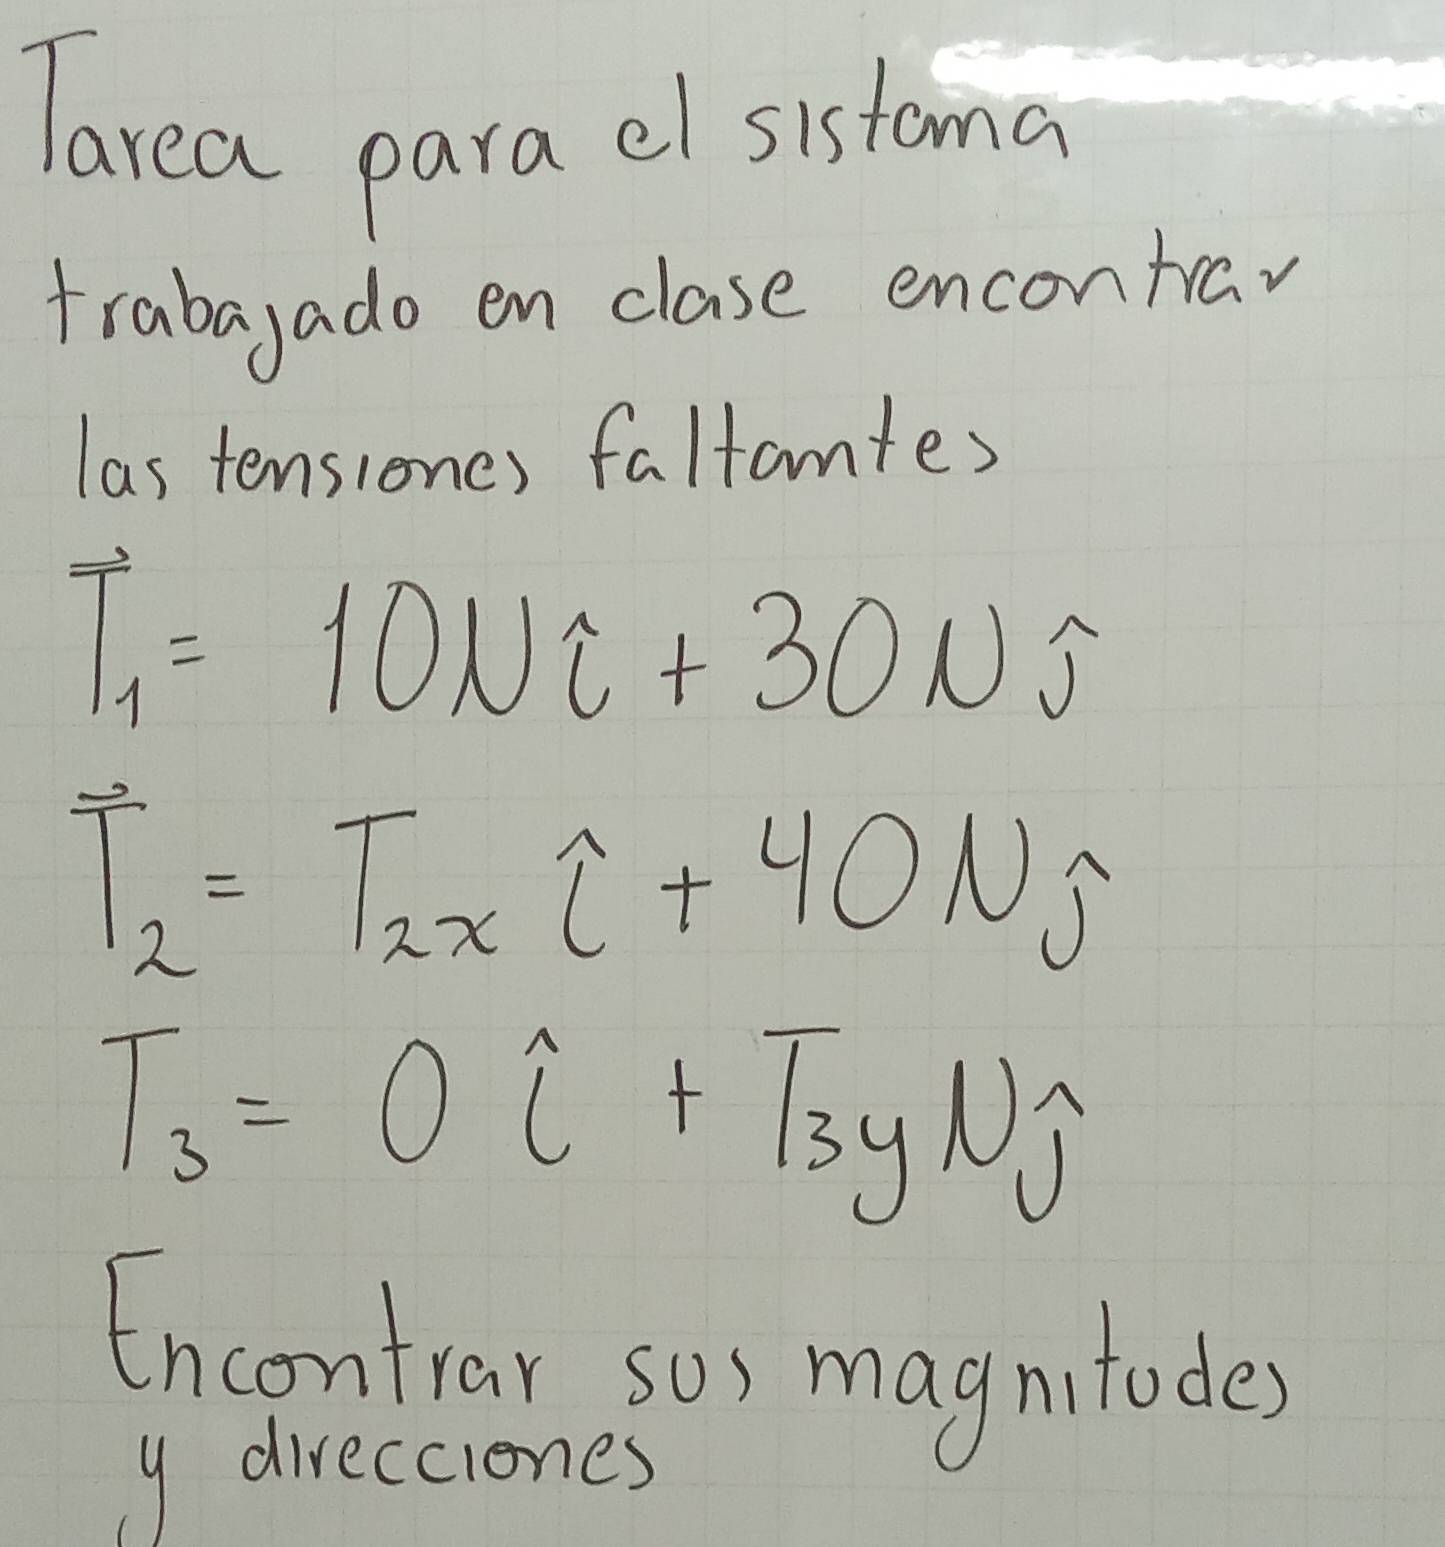 Tarea para el sistema
trabajado en clase encontrar
las tensiones faltantes
T⃗₁ = 10N î + 30N ĵ
T⃗₂ = T₂ₓ î + 40N ĵ
T₃ = 0 î + T₃y N ĵ
Encontrar sus magnitudes
y direcciones